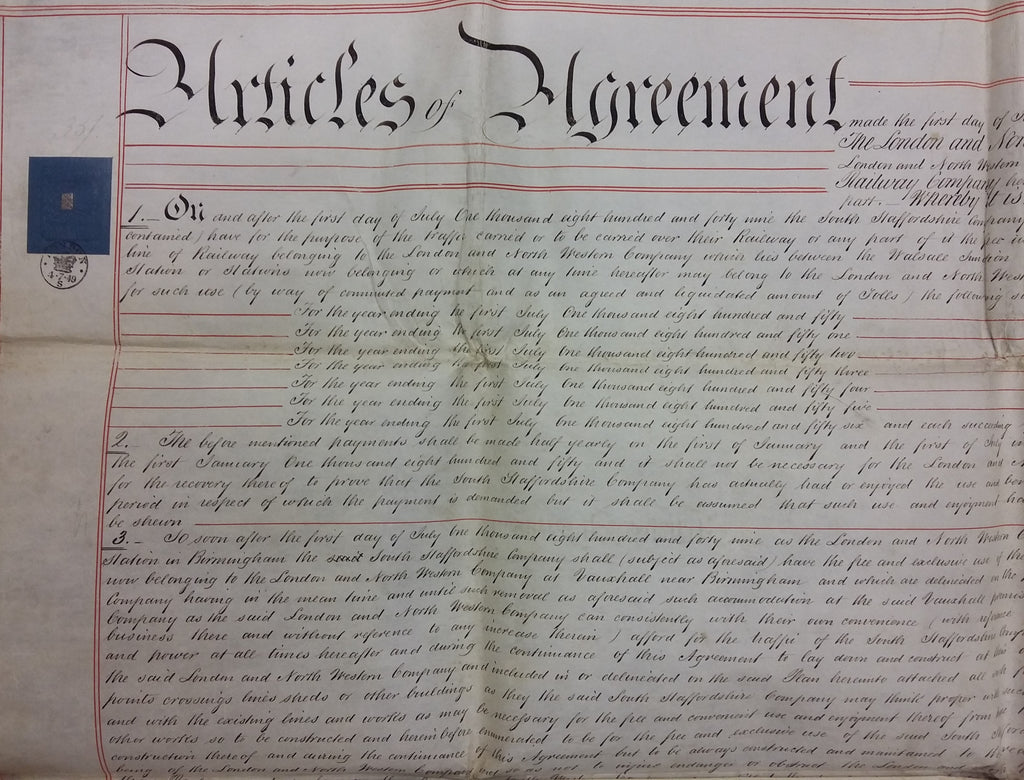 Articles of Agreement made the first day of
The London and
London and North Western
Railway Company
part. — Whereby it is
1. — On and after the first day of July One thousand eight hundred and forty nine the South Staffordshire Company
contained) have for the purpose of the traffic carried or to be carried over their Railway or any part of it the
line of Railway belonging to the London and North Western Company which lies between the Walsall Junction
Station or Stations now belonging or which at any time hereafter may belong to the London and North
for such use (by way of commuted payment and as an agreed and liquidated amount of Tolls) the following
For the year ending the first July One thousand eight hundred and fifty
For the year ending the first July One thousand eight hundred and fifty one
For the year ending the first July One thousand eight hundred and fifty two
For the year ending the first July One thousand eight hundred and fifty three
For the year ending the first July One thousand eight hundred and fifty four
For the year ending the first July One thousand eight hundred and fifty five
For the year ending the first July One thousand eight hundred and fifty six and each succeeding
2. — The before mentioned payments shall be made half yearly on the first of January and the first of July in
the first January One thousand eight hundred and fifty and it shall not be necessary for the London and
for the recovery thereof to prove that the South Staffordshire Company has actually had or enjoyed the use and
period in respect of which the payment is demanded but it shall be assumed that such use and enjoyment
be shewn
3. — So soon after the first day of July One thousand eight hundred and forty nine as the London and North Western
Station in Birmingham the said South Staffordshire Company shall (subject as aforesaid) have the free and exclusive use of
now belonging to the London and North Western Company at Vauxhall near Birmingham and which are delineated on the
Company having in the mean time and until such removal as aforesaid such accommodation at the said Vauxhall
Company as the said London and North Western Company can consistently with their own convenience (with reference
business there and without reference to any increase therein) afford for the traffic of the South Staffordshire
and power at all times hereafter and during the continuance of this Agreement to lay down and construct at
the said London and North Western Company and included in or delineated on the said Plan hereinto attached all
points crossings lines sheds or other buildings as they the said South Staffordshire Company may think proper
and with the existing lines and works as may be necessary for the free and convenient use and enjoyment thereof from
other works so to be constructed and herein before enumerated to be for the free and exclusive use of the said South
construction thereof and during the continuance of this Agreement but to be always constructed and maintained to the
being of the London and North Western Company and so as not to injure endanger or obstruct the London and